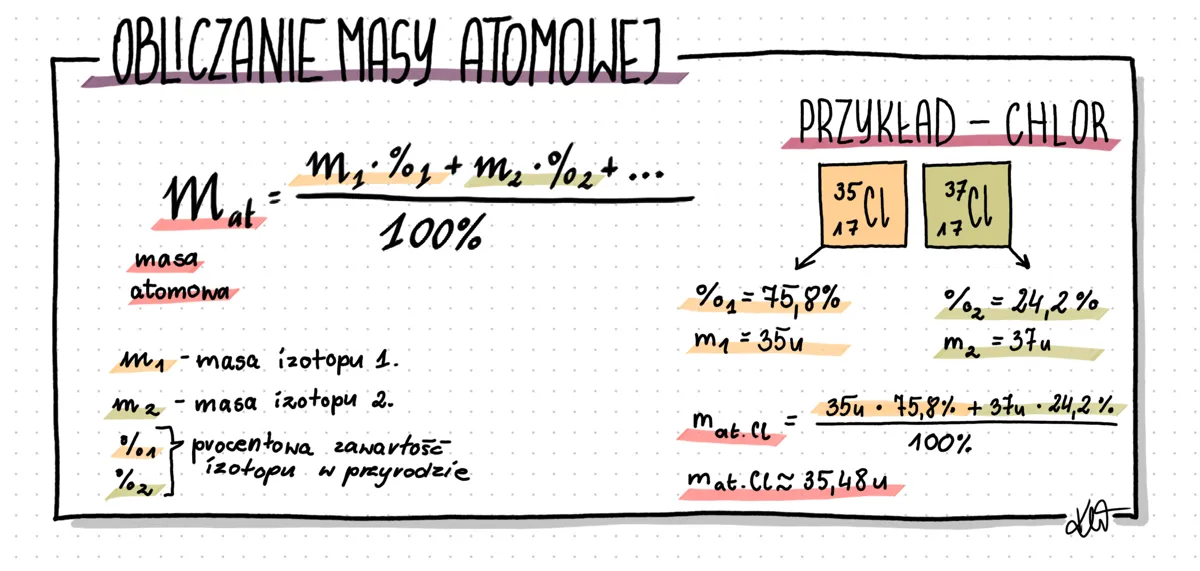 OBLICZANIE MASY ATOMOWEJ
m₁·%₁ + m₂·%₂ + ...
mat =
100%
masa
atomowa
m₁ - masa izotopu 1.
m₂ - masa izotopu 2.
%₁ } procentowa zawartość
%₂ izotopu w przyrodzie
PRZYKŁAD - CHLOR
³⁵₁₇Cl ³⁷₁₇Cl
%₁ = 75,8% %₂ = 24,2%
m₁ = 35u m₂ = 37u
35u · 75,8% + 37u · 24,2%
mat.Cl =
100%
mat.Cl ≈ 35,48u